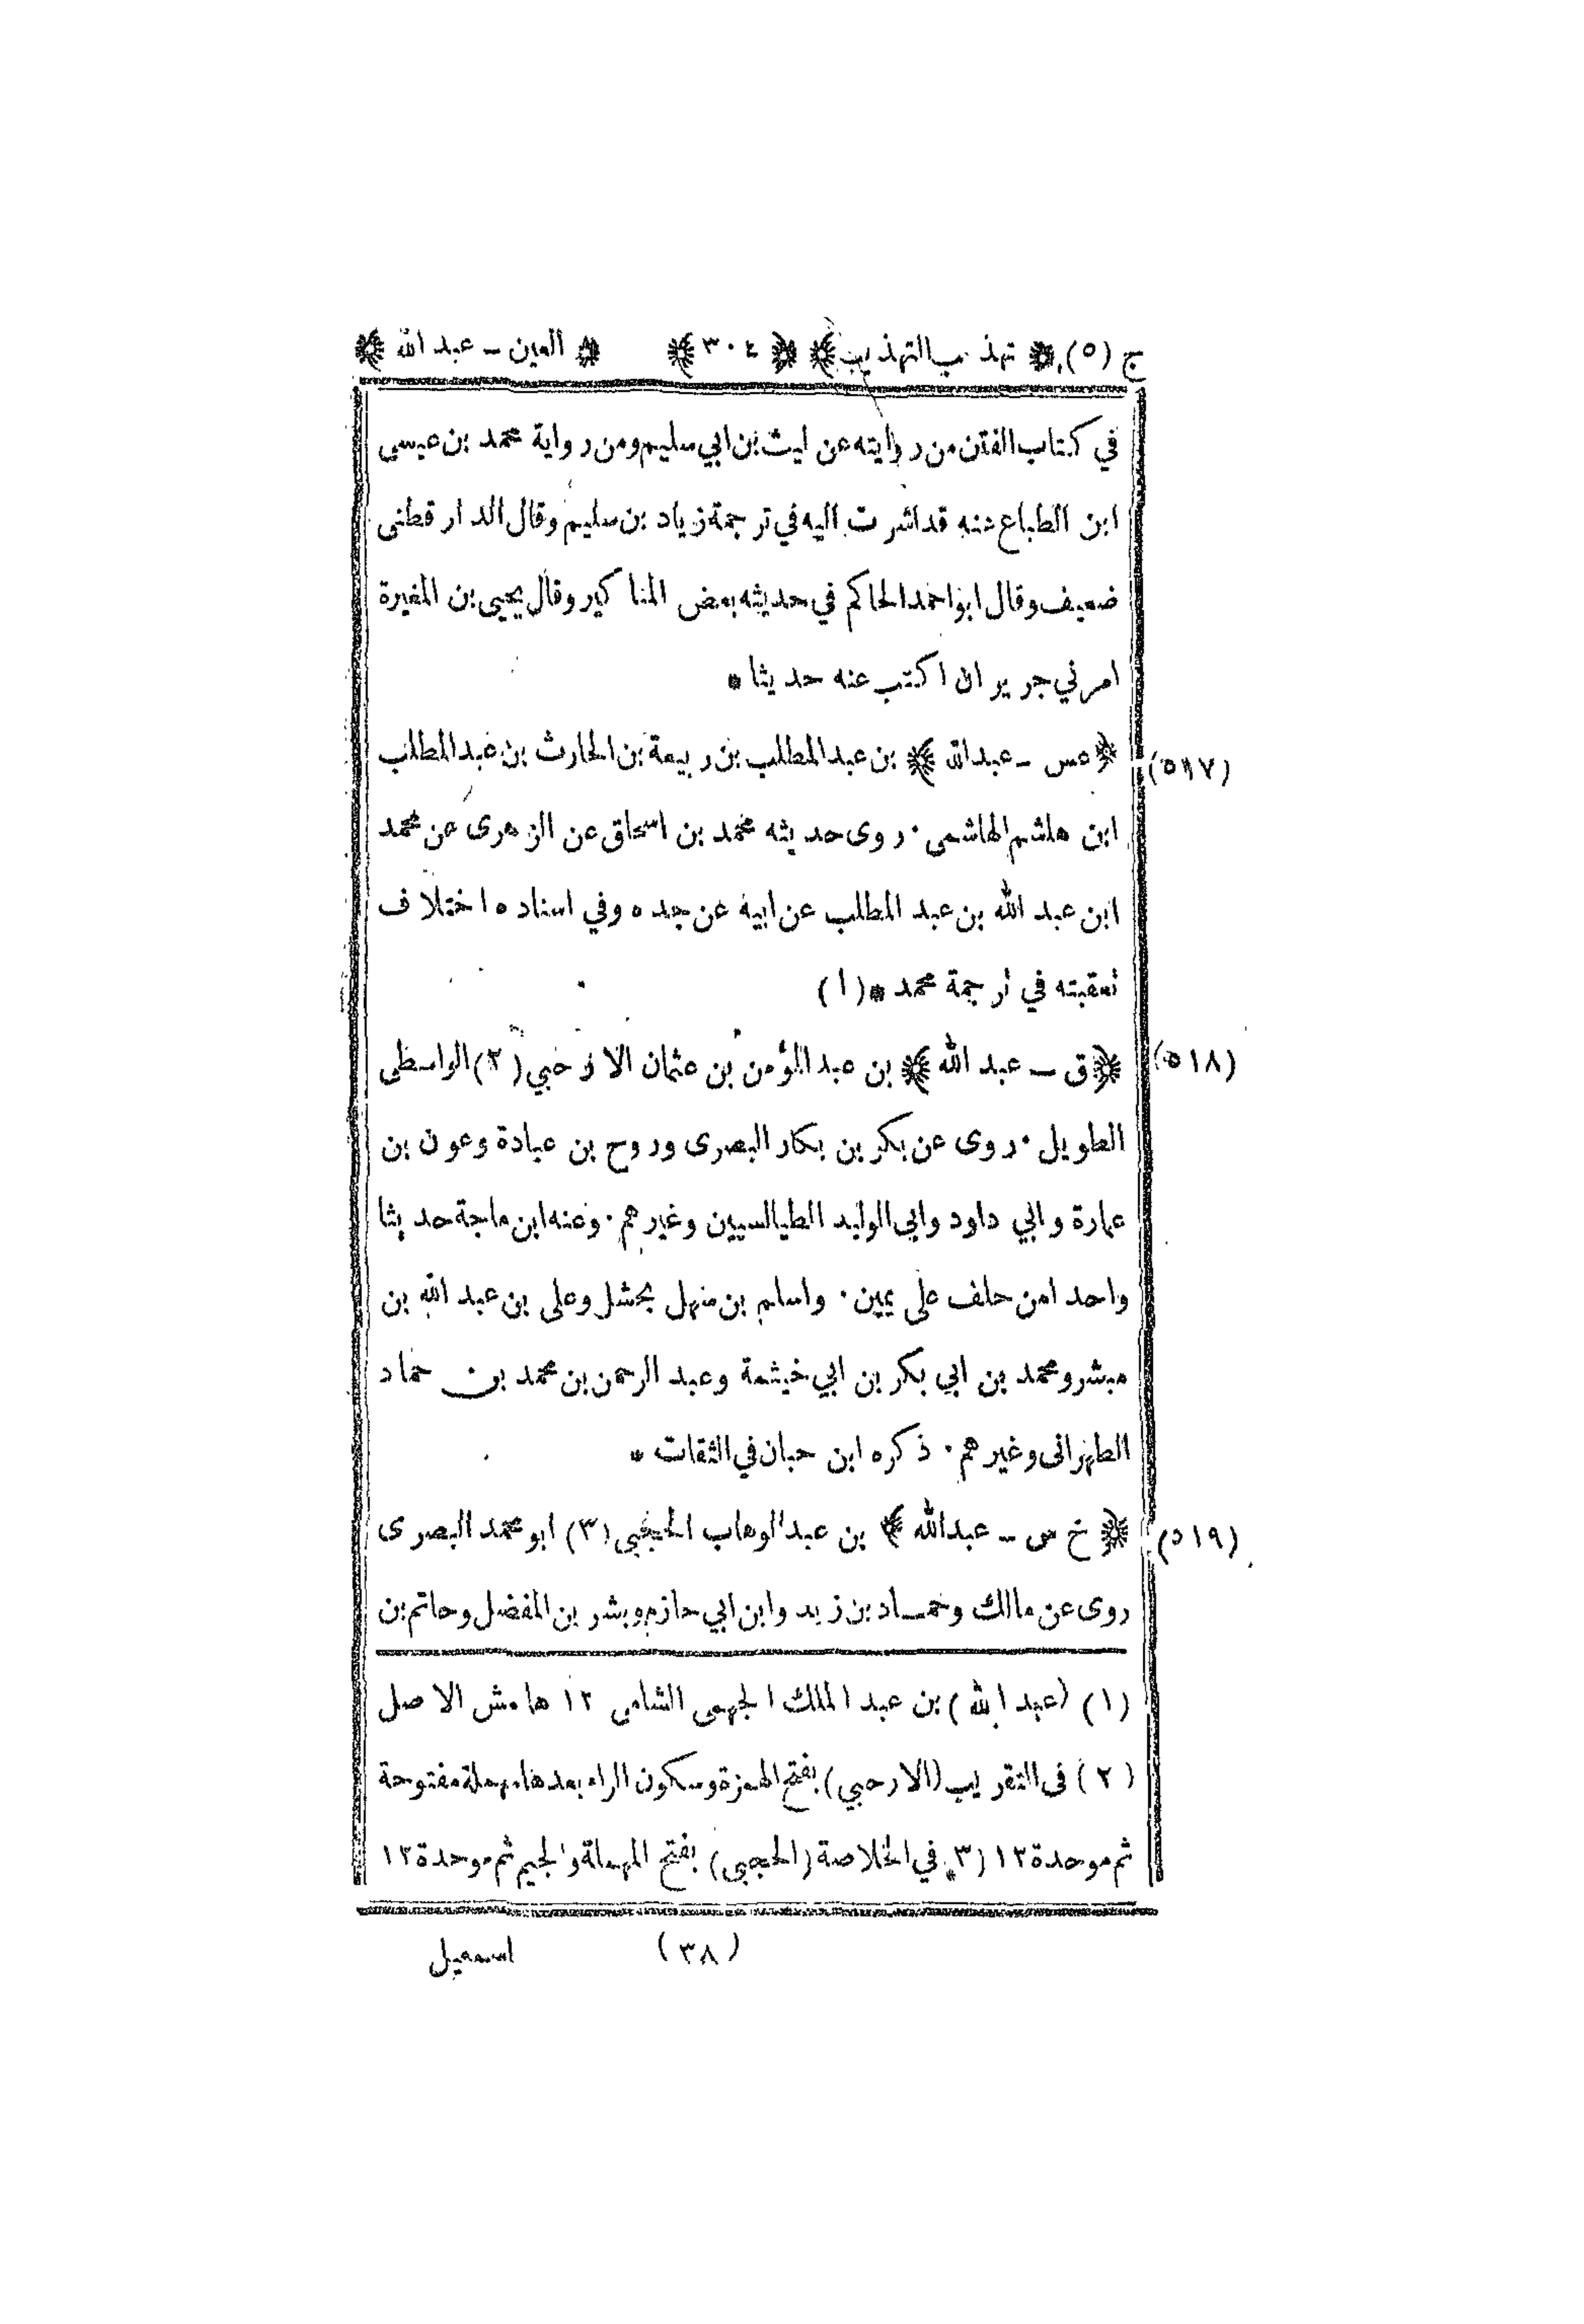 ج (٥) ﴿ تهذيب التهذيب ﴾ ﴿ ٣٠٤ ﴾ ﴿ العين - عبد الله ﴾
في كتاب الفتن من روايته عن ليث بن ابي سليم ومن رواية محمد بن عيسى
ابن الطباع عنه قد اشرت اليه في ترجمة زياد بن سليم وقال الدارقطنى
ضعيف وقال ابو احمد الحاكم في حديثه بعض المناكير وقال يحيى بن المغيرة
امرني جرير ان اكتب عنه حديثا *
(٥١٧) ﴿ عس - عبد الله ﴾ بن عبد المطلب بن ربيعة بن الحارث بن عبد المطلب
ابن هاشم الهاشمى ٠ روى حديثه محمد بن اسحاق عن الزهرى عن محمد
ابن عبد الله بن عبد المطلب عن ابيه عن جده وفي اسناده اختلاف
تعقبته في ترجمة محمد * (١)
(٥١٨) ﴿ ق - عبد الله ﴾ بن عبد المؤمن بن عثمان الارحبي (٢) الواسطى
الطويل ٠ روى عن بكر بن بكار البصرى وروح بن عبادة وعون بن
عمارة وابي داود وابي الوليد الطيالسيين وغيرهم ٠ وعنه ابن ماجة حديثا
واحدا من حلف على يمين ٠ واسلم بن سهل بحشل وعلى بن عبد الله بن
مبشر ومحمد بن ابي بكر بن ابي خيثمة وعبد الرحمن بن محمد بن حماد
الطهرانى وغيرهم ٠ ذكره ابن حبان في الثقات *
(٥١٩) ﴿ خ س - عبد الله ﴾ بن عبد الوهاب الحجبي (٣) ابو محمد البصرى
روى عن مالك وحماد بن زيد وابن ابي حازم وبشر بن المفضل وحاتم بن
(١) (عبد الله) بن عبد الملك الجهمى الشامى ١٢ هامش الاصل
(٢) فى التقريب (الارحبي) بفتح الهمزة وسكون الراء بعدها مهملة مفتوحة
ثم موحدة ١٢ (٣) في الخلاصة (الحجبى) بفتح المهملة والجيم ثم موحدة ١٢
(٣٨) اسمعيل